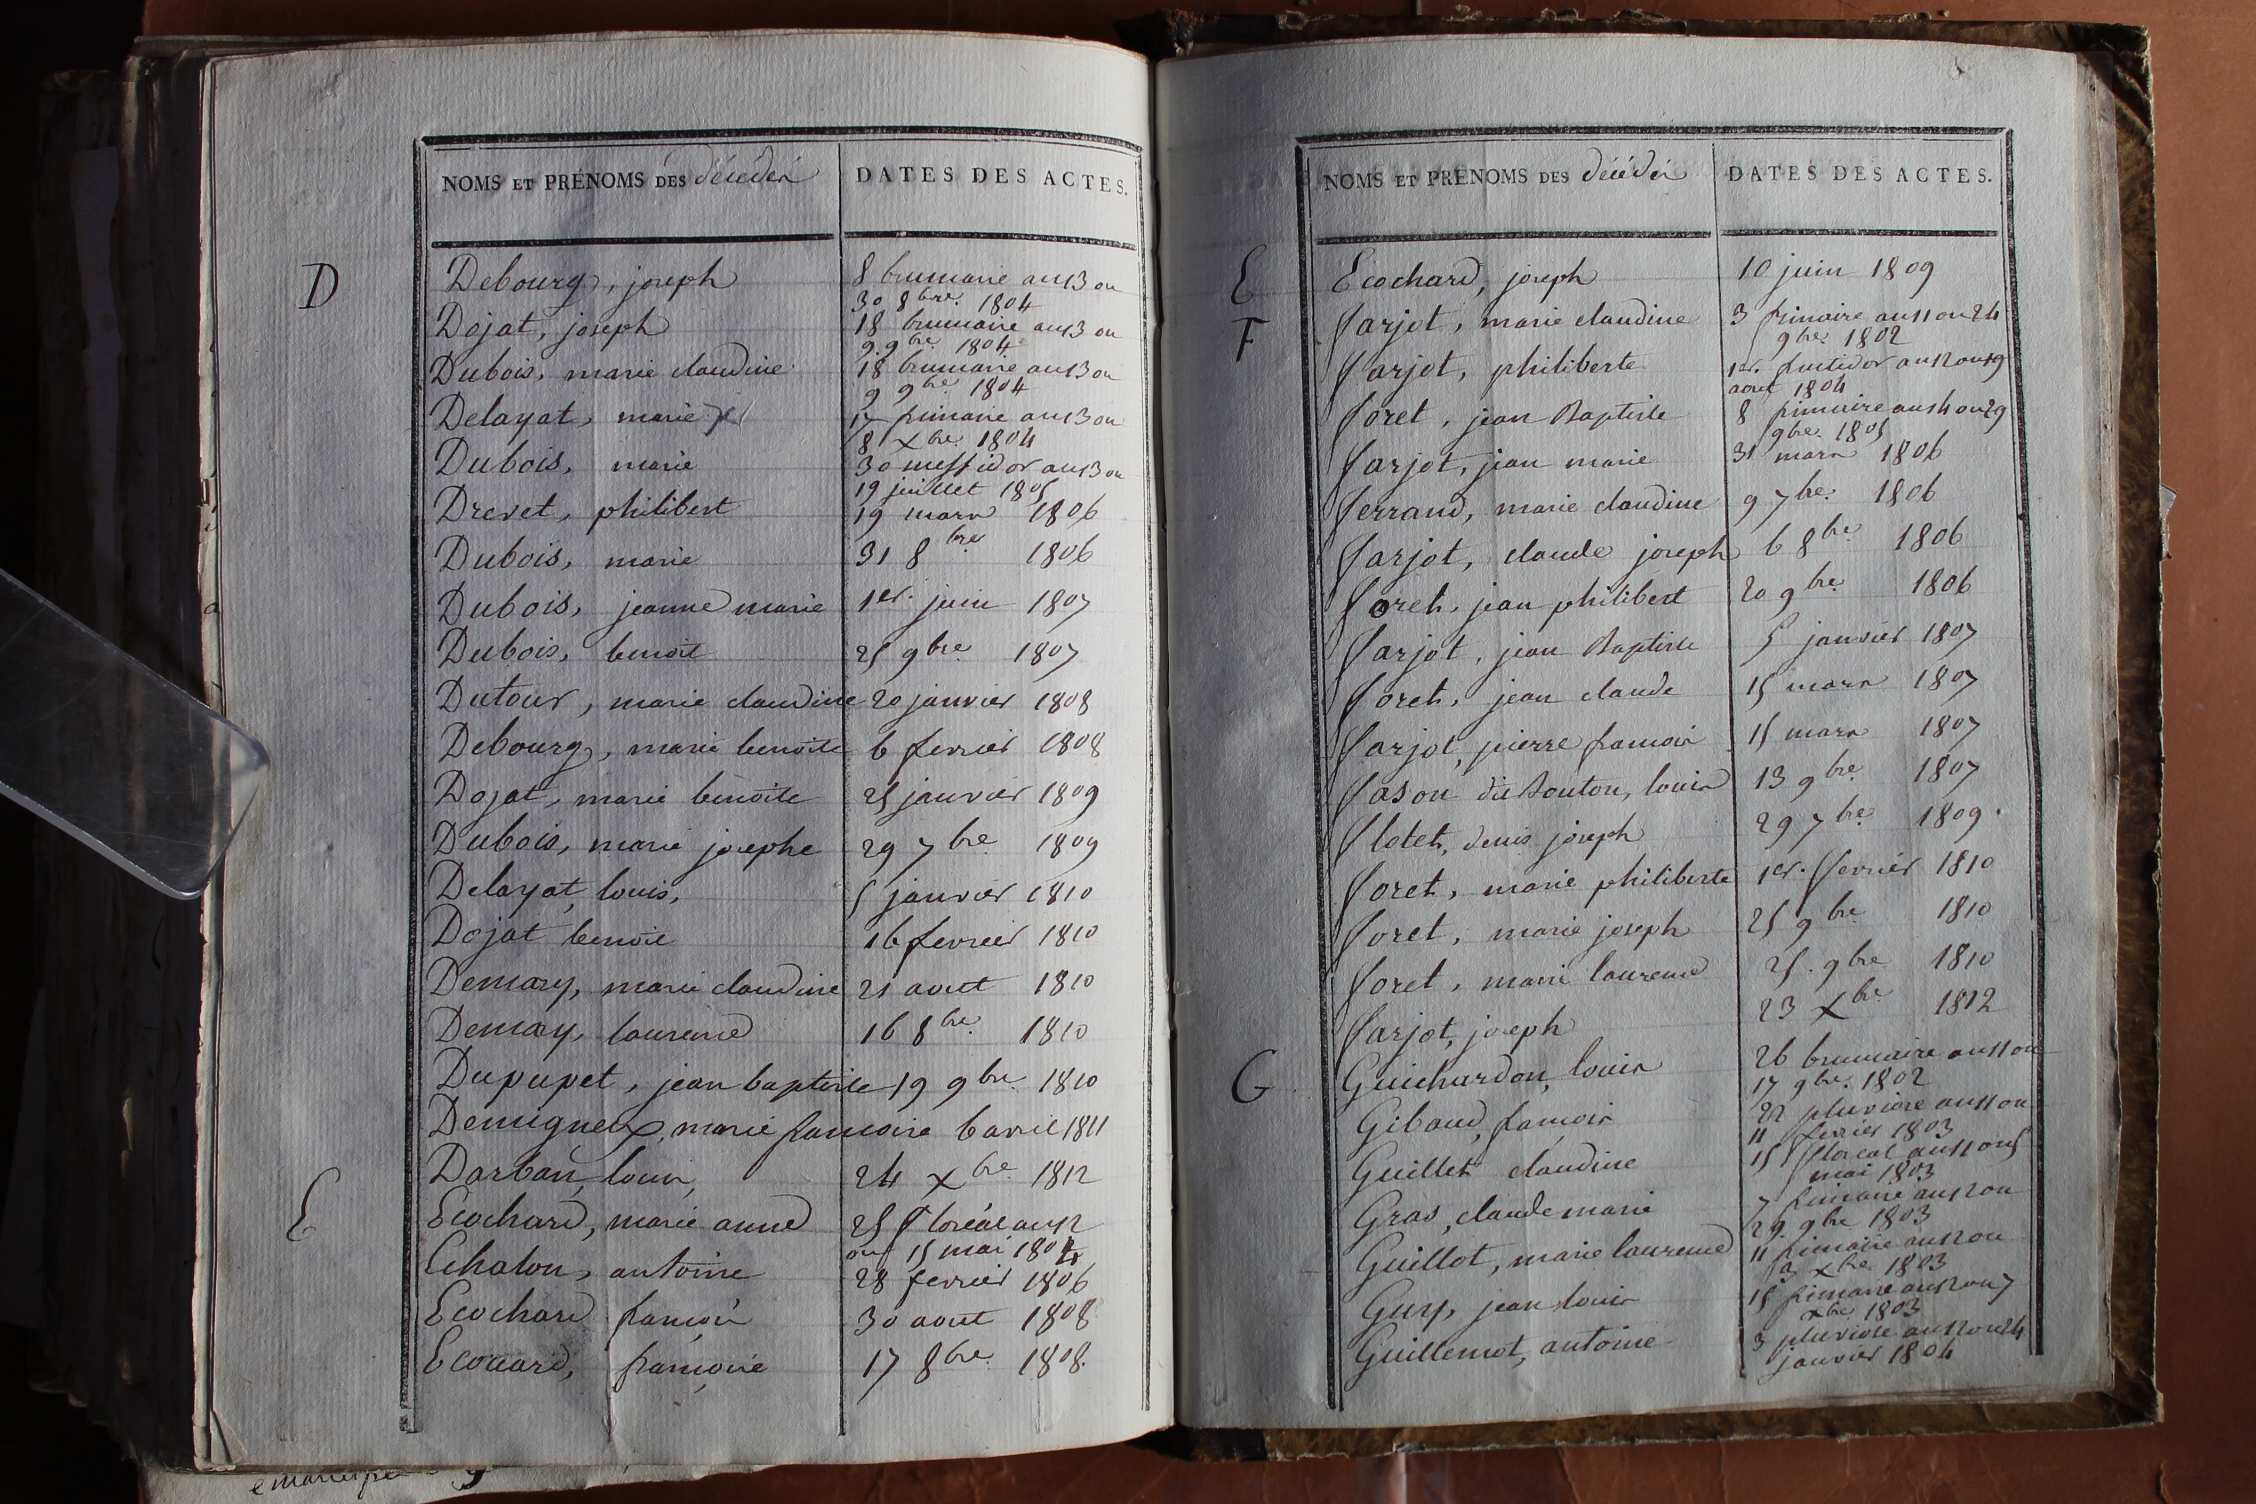 NOMS ET PRÉNOMS DES décédés DATES DES ACTES.
D
Debourg, joseph 8 brumaire an 13 ou
30 8bre. 1804
Dojat, joseph 18 brumaire an 13 ou
9 9bre. 1804
Dubois, marie claudine 18 brumaire an 13 ou
9 9bre 1804
Delayat, marie 17 frimaire an 13 ou
8 xbre. 1804
Dubois, marie 30 messidor an 13 ou
19 juillet 1805
Drevet, philibert 19 mars 1806
Dubois, marie 31 8bre 1806
Dubois, jeanne marie 1er. juin 1807
Dubois, benoit 25 9bre. 1807
Dutour, marie claudine 20 janvier 1808
Debourg, marie benoite 6 fevrier 1808
Dojat, marie benoite 25 janvier 1809
Dubois, marie josephe 29 7bre 1809
Delayat, louis, 5 janvier 1810
Dojat benoit 16 fevrier 1810
Demary, marie claudine 21 aout 1810
Demay, laurence 16 8bre. 1810
Dupupet, jean baptiste 19 9bre 1810
Demigneux, marie francoise 6 avril 1811
Darban, louis, 24 xbre 1812
E
Ecochard, marie anne 25 floréal an 12
ou 15 mai 1804
Echalon, antoine 28 fevrier 1806
Ecochard françois 30 aout 1808
Ecouard, françoise 17 8bre. 1808.
NOMS ET PRÉNOMS DES décédés DATES DES ACTES.
E
Ecochard, joseph 10 juin 1809
F
farjot, marie claudine 3 frimaire an 11 ou 24
9bre. 1802
farjot, philiberte 1er. fructidor an 12 ou 19
aout 1804
foret, jean Baptiste 8 frimaire an 14 ou 29
9bre. 1805
farjot, jean marie 31 mars 1806
ferrand, marie claudine 9 7bre. 1806
farjot, claude joseph 6 8bre. 1806
foret, jean philibert 20 9bre. 1806
farjot, jean Baptiste 5 janvier 1807
foret, jean claude 15 mars 1807
farjot, pierre francois 15 mars 1807
fason dit Bouton, louis 13 9bre. 1807
flotet, denis joseph 29 7bre. 1809.
foret, marie philiberte 1er. fevrier 1810
foret, marie joseph 25 9bre 1810
foret, marie laurence 25. 9bre 1810
farjot, joseph 23 xbre. 1812
G
Guichardon, louis 26 brumaire an 11 ou
17 9bre. 1802
Gibaud, francois 22 pluviose an 11 ou
11 fevrier 1803
Guillet claudine 15 floreal an 11 ou 5
mai 1803
Gras, claude marie 7 frimaire an 12 ou
29 9bre 1803
Guillot, marie laurence 11 frimaire an 12 ou
3 xbre 1803
Guy, jean louis 15 frimaire an 12 ou 7
xbre 1803
Guillemot, antoine 3 pluviose an 12 ou 24
janvier 1804